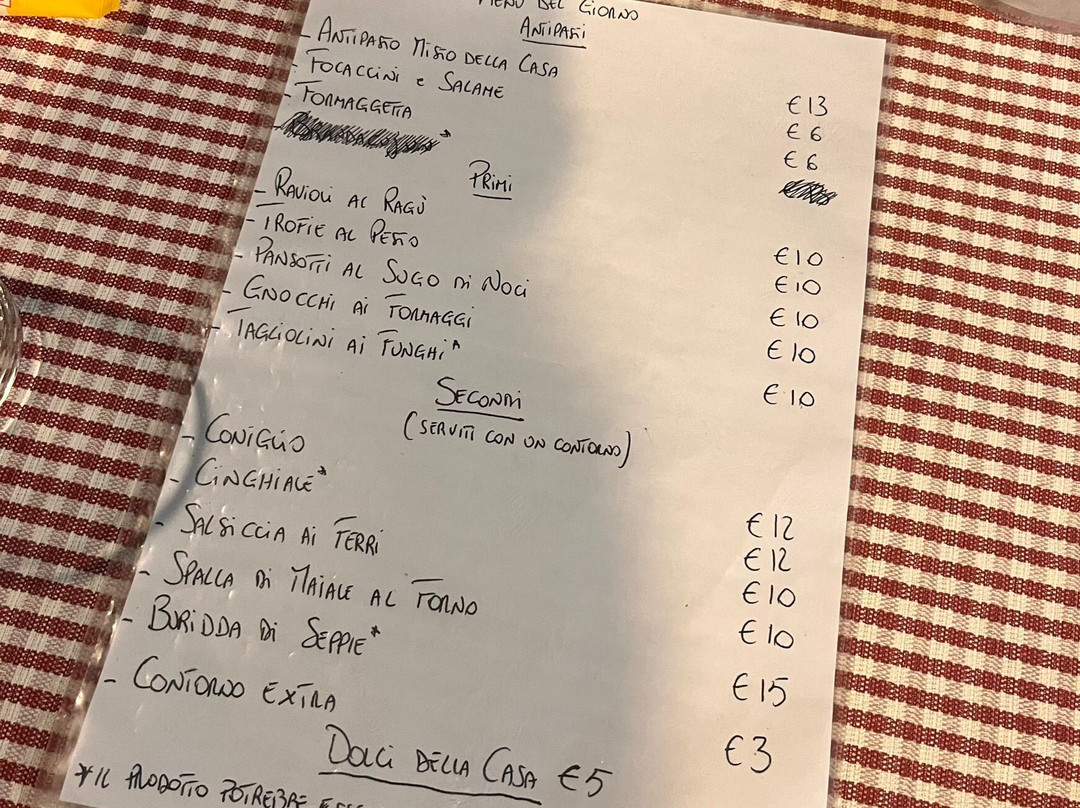 MENÙ DEL GIORNO
ANTIPASTI
- ANTIPASTO MISTO DELLA CASA €13
- FOCACCINI e SALAME €6
- FORMAGGETTA €6
PRIMI
- RAVIOLI AL RAGÙ €10
- TROFIE AL PESTO €10
- PANSOTTI AL SUGO DI NOCI €10
- GNOCCHI AI FORMAGGI €10
- TAGLIOLINI AI FUNGHI* €10
SECONDI
(SERVITI CON UN CONTORNO)
- CONIGLIO €12
- CINGHIALE* €12
- SALSICCIA AI FERRI €10
- SPALLA DI MAIALE AL FORNO €10
- BURIDDA DI SEPPIE* €15
- CONTORNO EXTRA €3
DOLCI DELLA CASA €5
*IL PRODOTTO POTREBBE